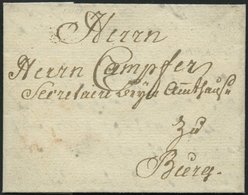 Herrn
Herrn Campfer
Secretair beym Amthause
zu
Burg.